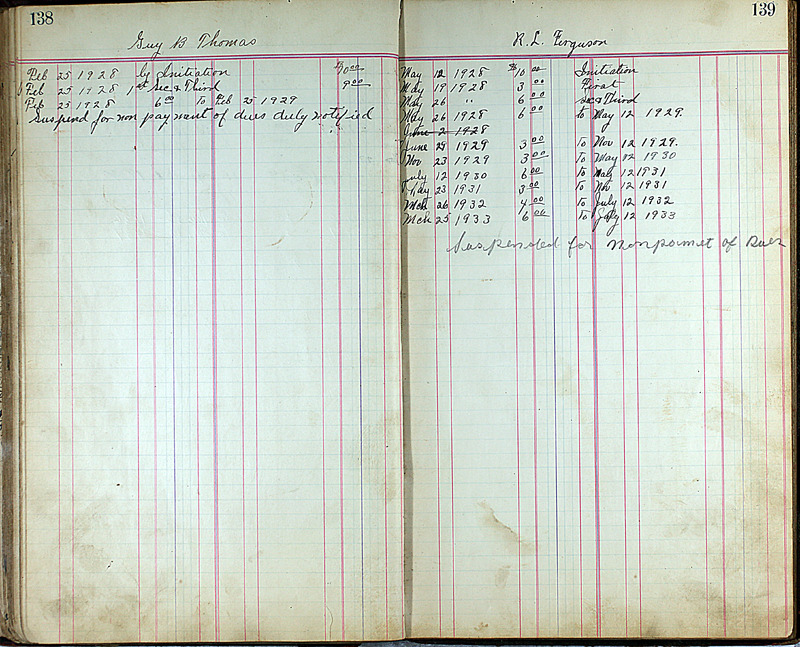 138
Guy B Thomas
Feb 25 1928 by Initiation $10 00
Feb 25 1928 1st sec & Third 9 00
Feb 25 1928 6 00 To Feb 25 1929
Suspend for non payment of dues duly notified
139
R.L. Ferguson
May 12 1928 $10 00 Initiation
May 19 1928 3 00 First
May 26 " 6 00 sec & Third
May 26 1928 6 00 to May 12 1929.
June 2 1928
June 29 1929 3 00 To Nov 12 1929.
Nov 23 1929 3 00 To May 12 1930
July 12 1930 6 00 To May 12 1931
May 23 1931 3 00 To Nov 12 1931
Mch 26 1932 4 00 To July 12 1932
Mch 25 1933 6 00 To July 12 1933
Suspended for nonpamet of Dues